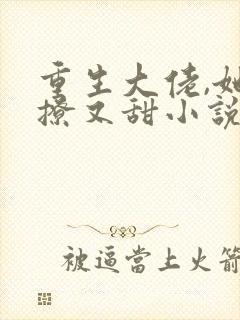 重生大佬,她
撩又甜小說
被逼當上火箭